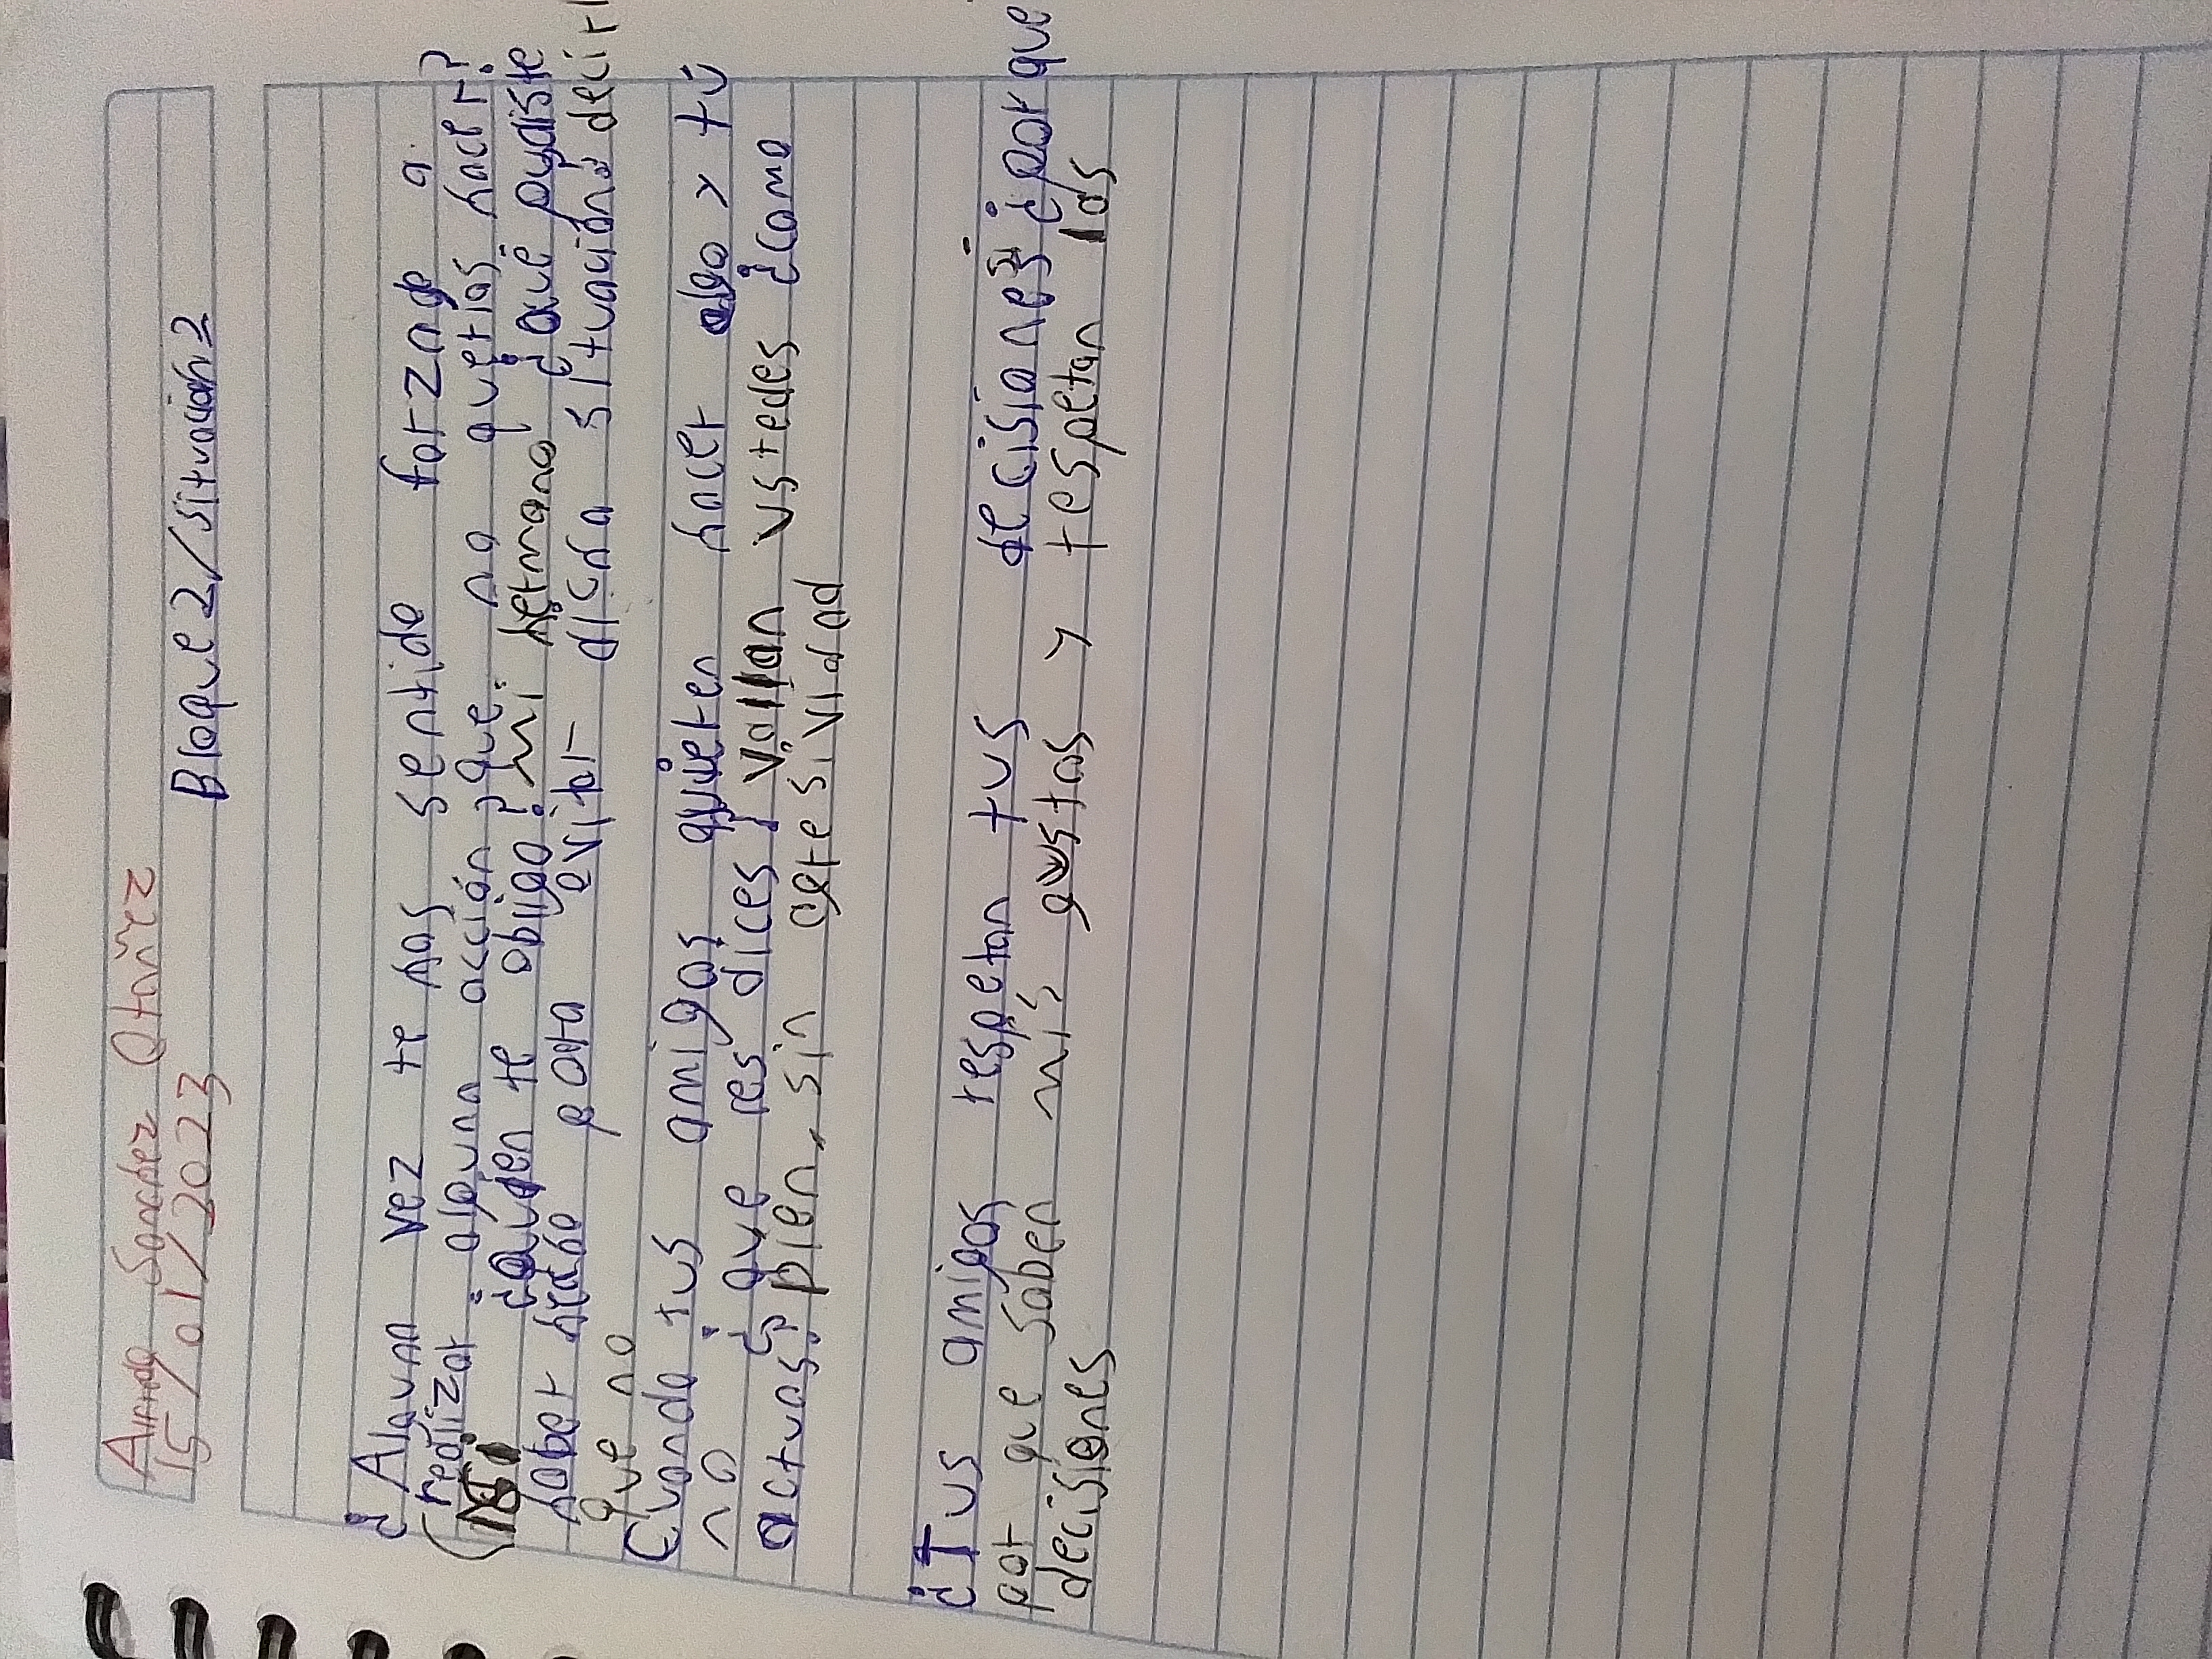 Sanchez Otañez
15/01/2023
Bloque 2/situación 2
¿Alguna vez te has sentido forzado a
realizar alguna acción que no querías hacer?
¿Quién te obligo? mi hermano ¿Qué pudiste
haber hecho para evitar dicha situación? decir
que no
Cuando tus amigos quieren hacer algo y tú
no ¿que les dices? vallan ustedes ¿como
actuas? bien, sin agresividad
¿Tus amigos respetan tus decisiones? si ¿por que
por que saben mis gustos y respetan las
decisiones